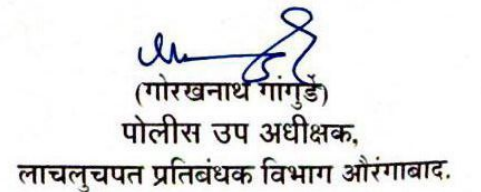 (गोरखनाथ गांगुर्डे)
पोलीस उप अधीक्षक,
लाचलुचपत प्रतिबंधक विभाग औरंगाबाद.